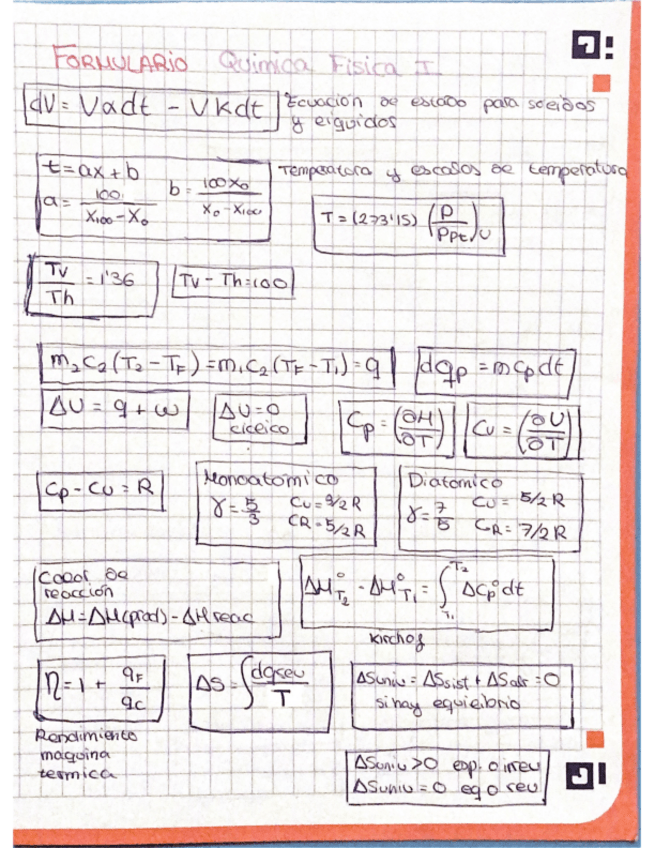 FORMULARIO Química Física I
dV = Vαdt - VKdt Ecuación de estado para solidos
y liquidos
t = ax + b
a = 100 / (X100 - X0) b = 100X0 / (X0 - X100)
Temperatura y escalas de temperatura
T = (273'15) (P / Ppt)v
Tv / Th = 1'36 Tv - Th = 100
m2 c2 (T2 - TF) = m1 c2 (TF - T1) = q dqp = m cp dt
ΔU = q + w ΔU = 0 Cp = (∂H / ∂T) Cv = (∂U / ∂T)
ciclico
Cp - Cv = R
Monoatomico
γ = 5/3 Cv = 3/2 R
CR = 5/2 R
Diatomico
γ = 7/5 Cv = 5/2 R
CR = 7/2 R
Calor de
reacción
ΔH = ΔH(prod) - ΔH reac
ΔH°T2 - ΔH°T1 = ∫T1T2 ΔCp° dt
Kirchof
η = 1 + qF / qc ΔS = ∫ dqrev / T
ΔSuniv = ΔSsist + ΔSalr = 0
si hay equilibrio
Rendimiento
maquina
termica
ΔSuniv > 0 esp. o irrev
ΔSuniv = 0 eq o rev